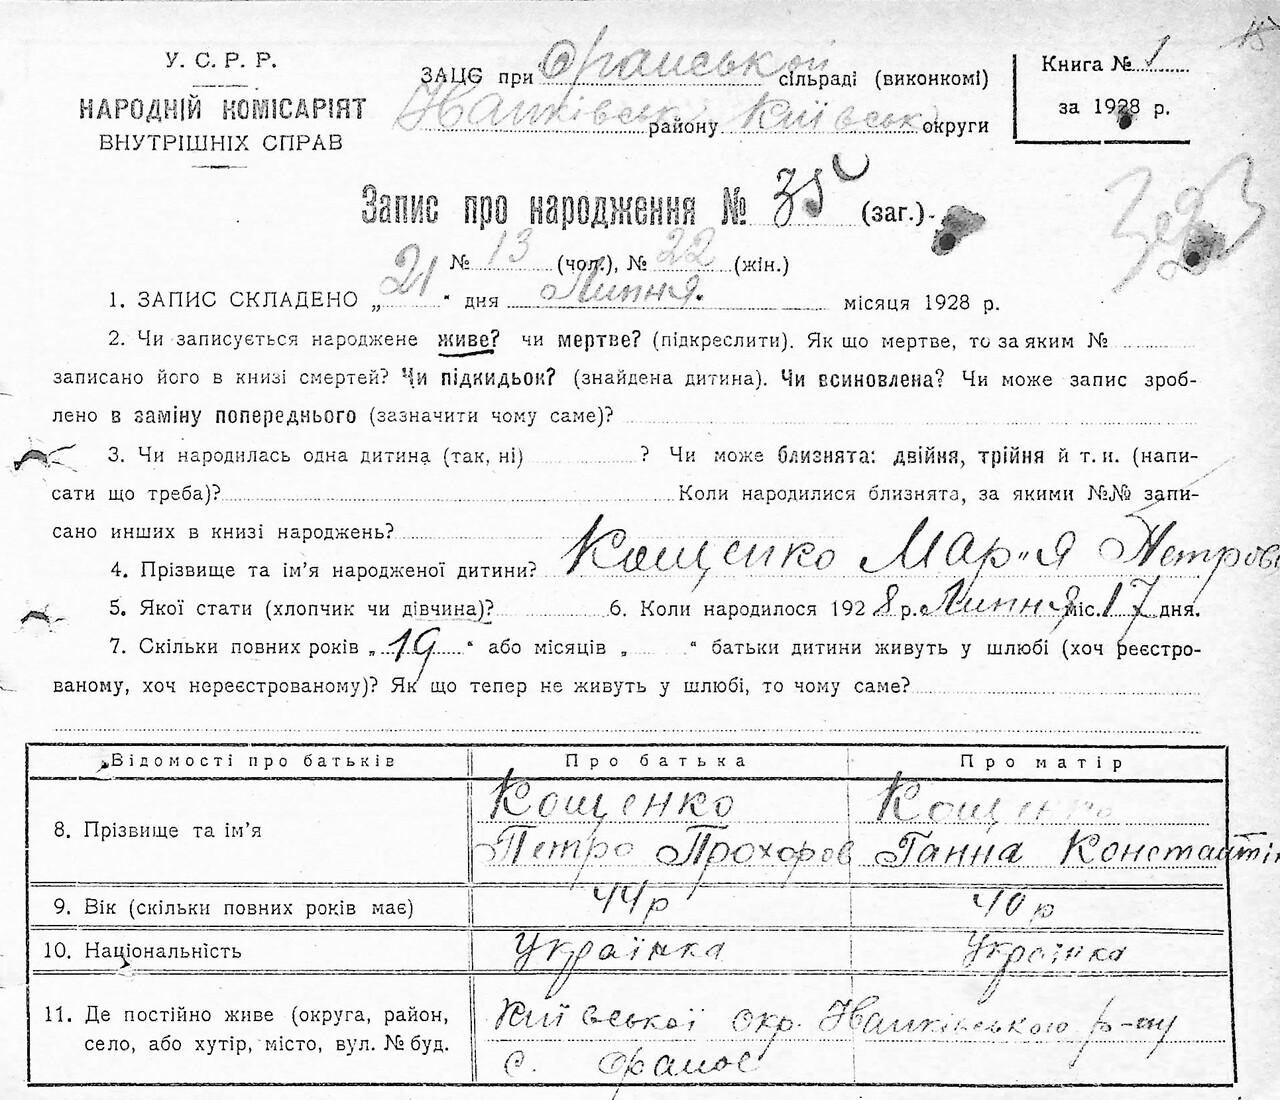 У. С. Р. Р.
НАРОДНІЙ КОМІСАРІЯТ
ВНУТРІШНІХ СПРАВ
ЗАЦС при сільраді (виконкомі)
району Київськ округи
Книга № 1
за 1928 р.
Запис про народження № 35 (заг.)
№ 13 (чол.), № 22 (жін.)
1. ЗАПИС СКЛАДЕНО „ 21 “ дня Липня місяця 1928 р.
2. Чи записується народжене живе? чи мертве? (підкреслити). Як що мертве, то за яким №
записано його в книзі смертей? Чи підкидьок? (знайдена дитина). Чи всиновлена? Чи може запис зроб-
лено в заміну попереднього (зазначити чому саме)?
3. Чи народилась одна дитина (так, ні) ? Чи може близнята: двійня, трійня й т. и. (напи-
сати що треба)? Коли народилися близнята, за якими №№ запи-
сано инших в книзі народжень?
4. Прізвище та ім'я народженої дитини? Кощенко Мар"я Петров
5. Якої стати (хлопчик чи дівчина)? 6. Коли народилося 1928 р. Липня міс. 17 дня.
7. Скільки повних років „ 19 “ або місяців „ “ батьки дитини живуть у шлюбі (хоч реєстро-
ваному, хоч нереєстрованому)? Як що тепер не живуть у шлюбі, то чому саме?
Відомості про батьків Про батька Про матір
8. Прізвище та ім'я Кощенко Петро Прохоров Кощенко Ганна Константін
9. Вік (скільки повних років має) 44 р 40 р
10. Національність Українка Українка
11. Де постійно живе (округа, район, Київської окр. р-ну
село, або хутір, місто, вул. № буд. с.